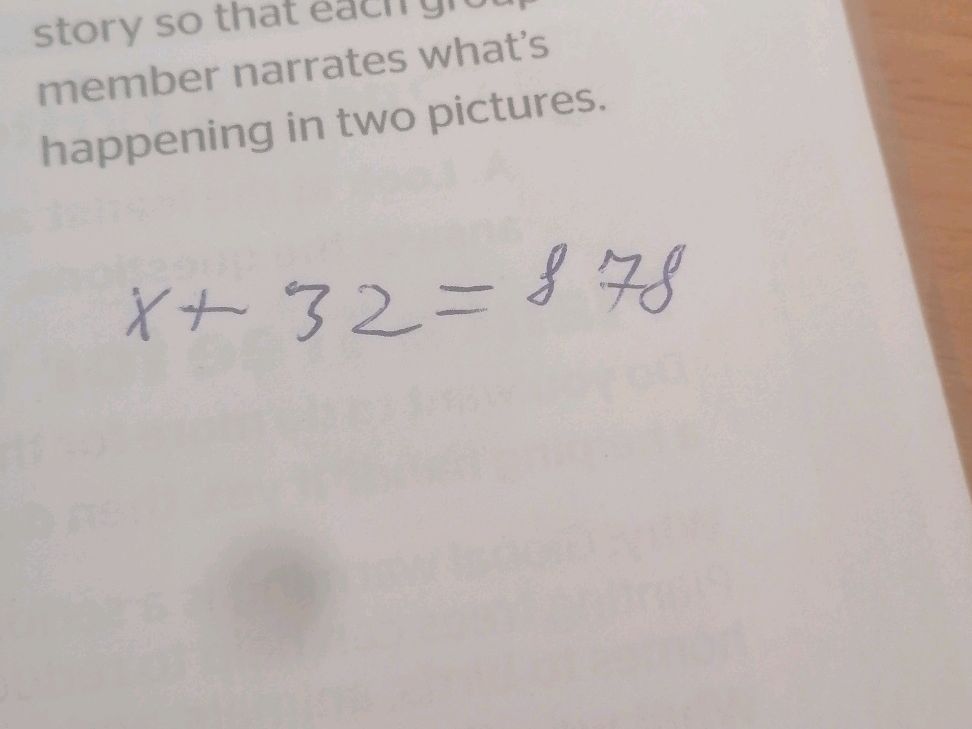 story so that each group
member narrates what's
happening in two pictures.
x + 32 = 878